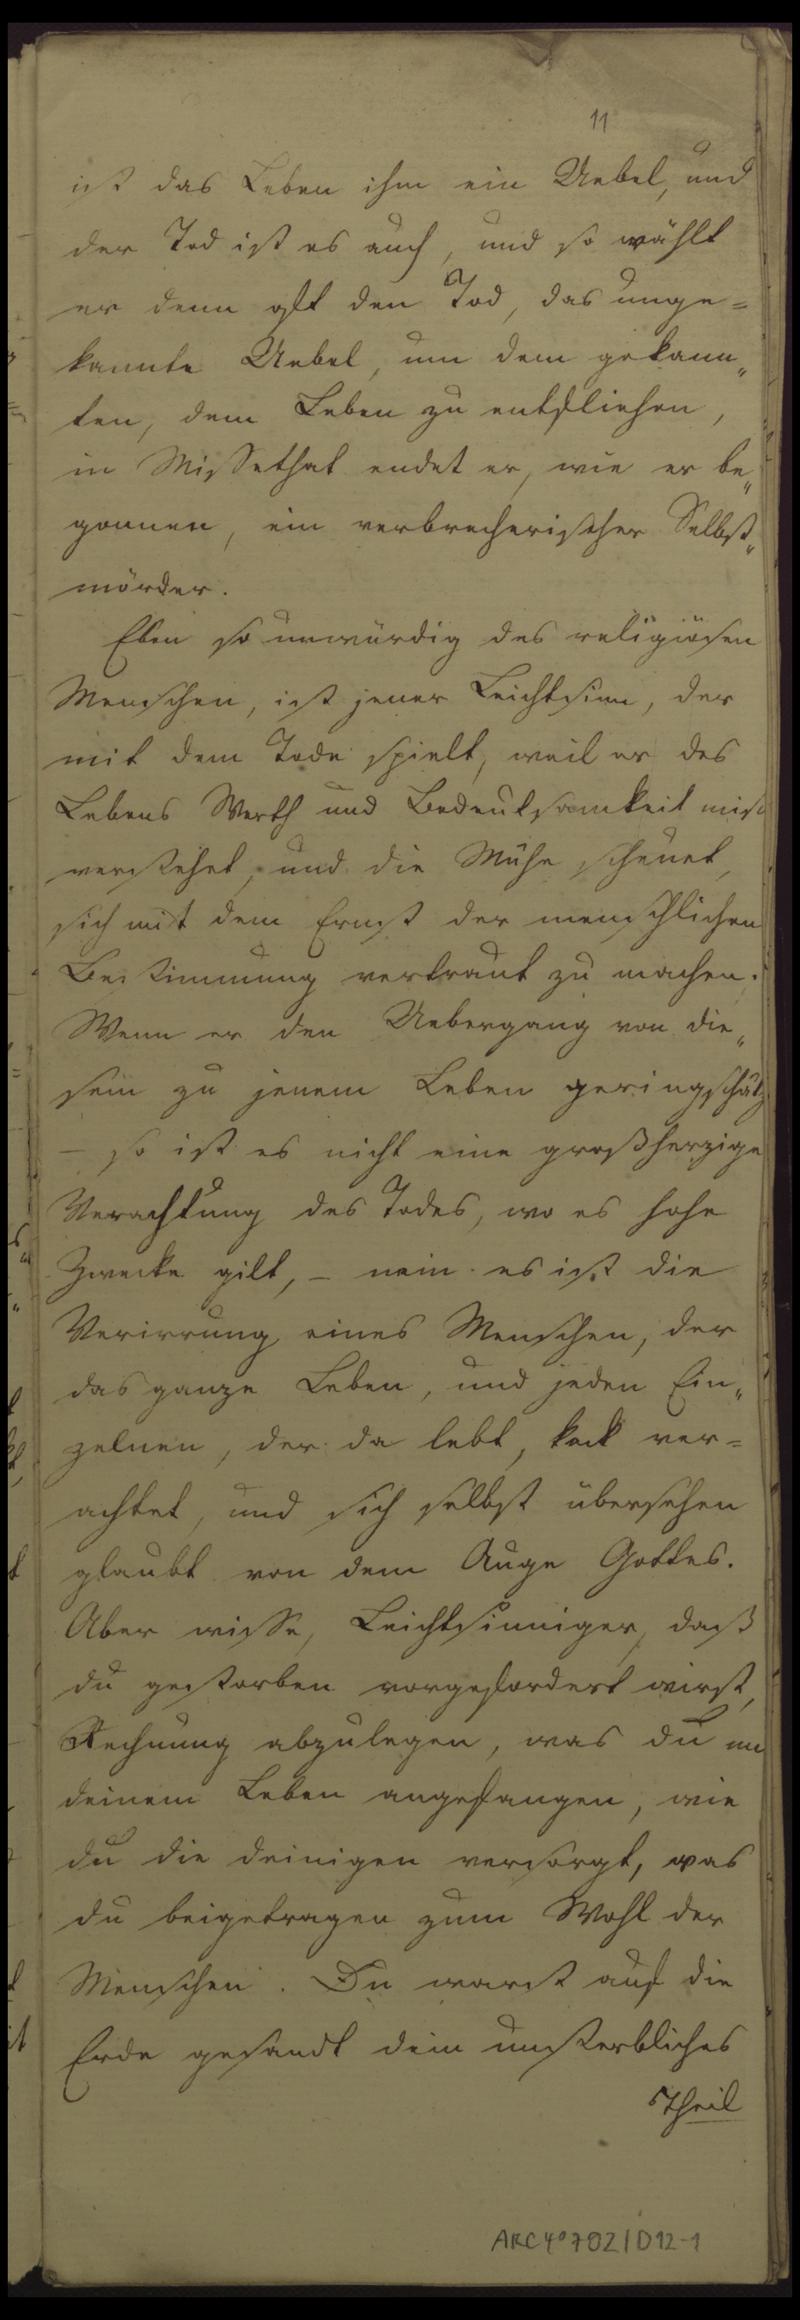 11
ist das Leben ihm ein Uebel, und
der Tod ist es auch, und so wählt
er denn oft den Tod, das unge=
kannte Uebel, um dem gekann„
ten, dem Leben zu entfliehen,
in Missethat endet er, wie er be„
gonnen, ein verbrecherischer Selbst„
mörder.
Eben so unwürdig des religiösen
Menschen, ist jener Leichtsinn, der
mit dem Tode spielt, weil er des
Lebens Werth und Bedeutsamkeit miß
verstehet, und die Mühe scheuet,
sich mit dem Ernst der menschlichen
Bestimmung vertraut zu machen.
Wenn er den Uebergang von die„
sem zu jenem Leben geringschätz
– so ist es nicht eine großherzige
Verachtung des Todes, wo es hohe
Zwecke gilt, – nein es ist die
Verirrung eines Menschen, der
das ganze Leben, und jeden Ein„
zelnen, der da lebt, keck ver=
achtet, und sich selbst übersehen
glaubt von dem Auge Gottes.
Aber wisse, Leichtsinniger, daß
du gestorben vorgefordert wirst,
Rechnung abzulegen, was du in
deinem Leben angefangen, wie
du die deinigen versorgt, was
du beigetragen zum Wohl der
Menschen. Du warst auf die
Erde gesandt dein unsterbliches
Theil
ARC 4° 702/D12-1